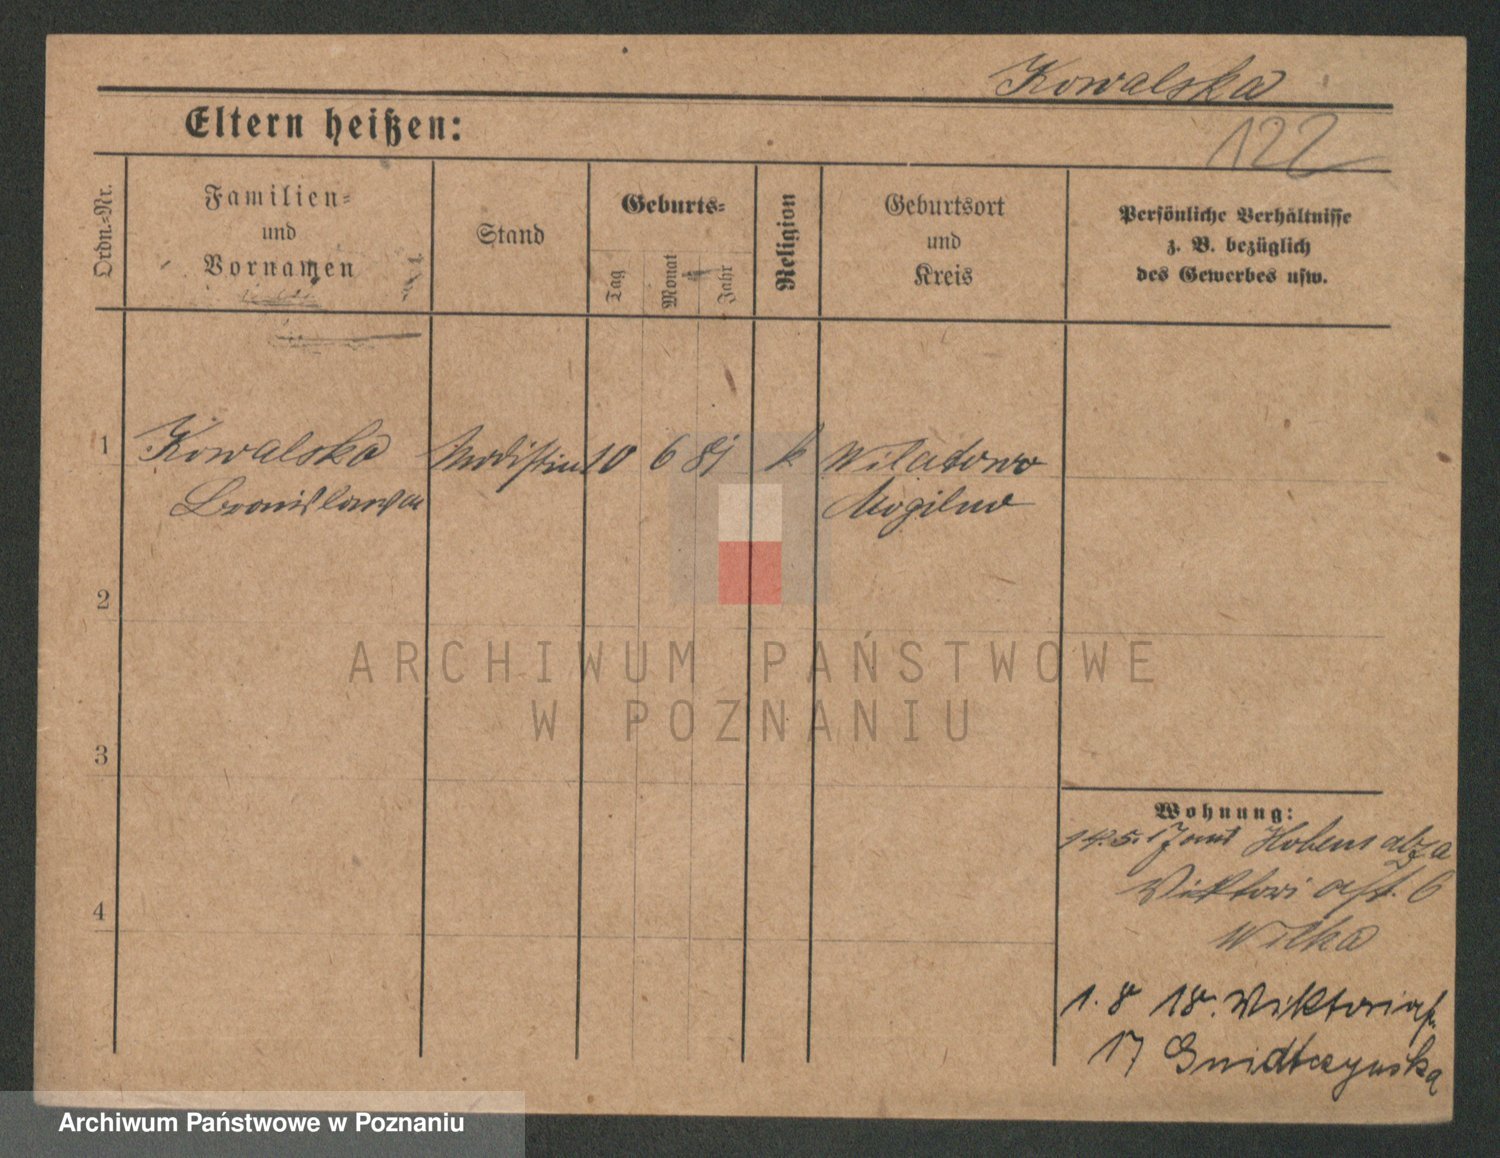 Kowalska
122
Eltern heißen:
Ordn.=Nr.
Familien=
und
Vornamen
Stand
Geburts=
Tag
Monat
Jahr
Religion
Geburtsort
und
Kreis
Persönliche Verhältnisse
z. B. bezüglich
des Gewerbes usw.
1 Kowalska Modistin 10 6 81 k Wilatowo
Bronislawa Mogilno
2
3
4
Wohnung:
14.5.17 Hohensalza
Viktoriast. 6
Wilka
1. 8 18. Viktoriast.
17
ARCHIWUM PAŃSTWOWE
W POZNANIU
Archiwum Państwowe w Poznaniu